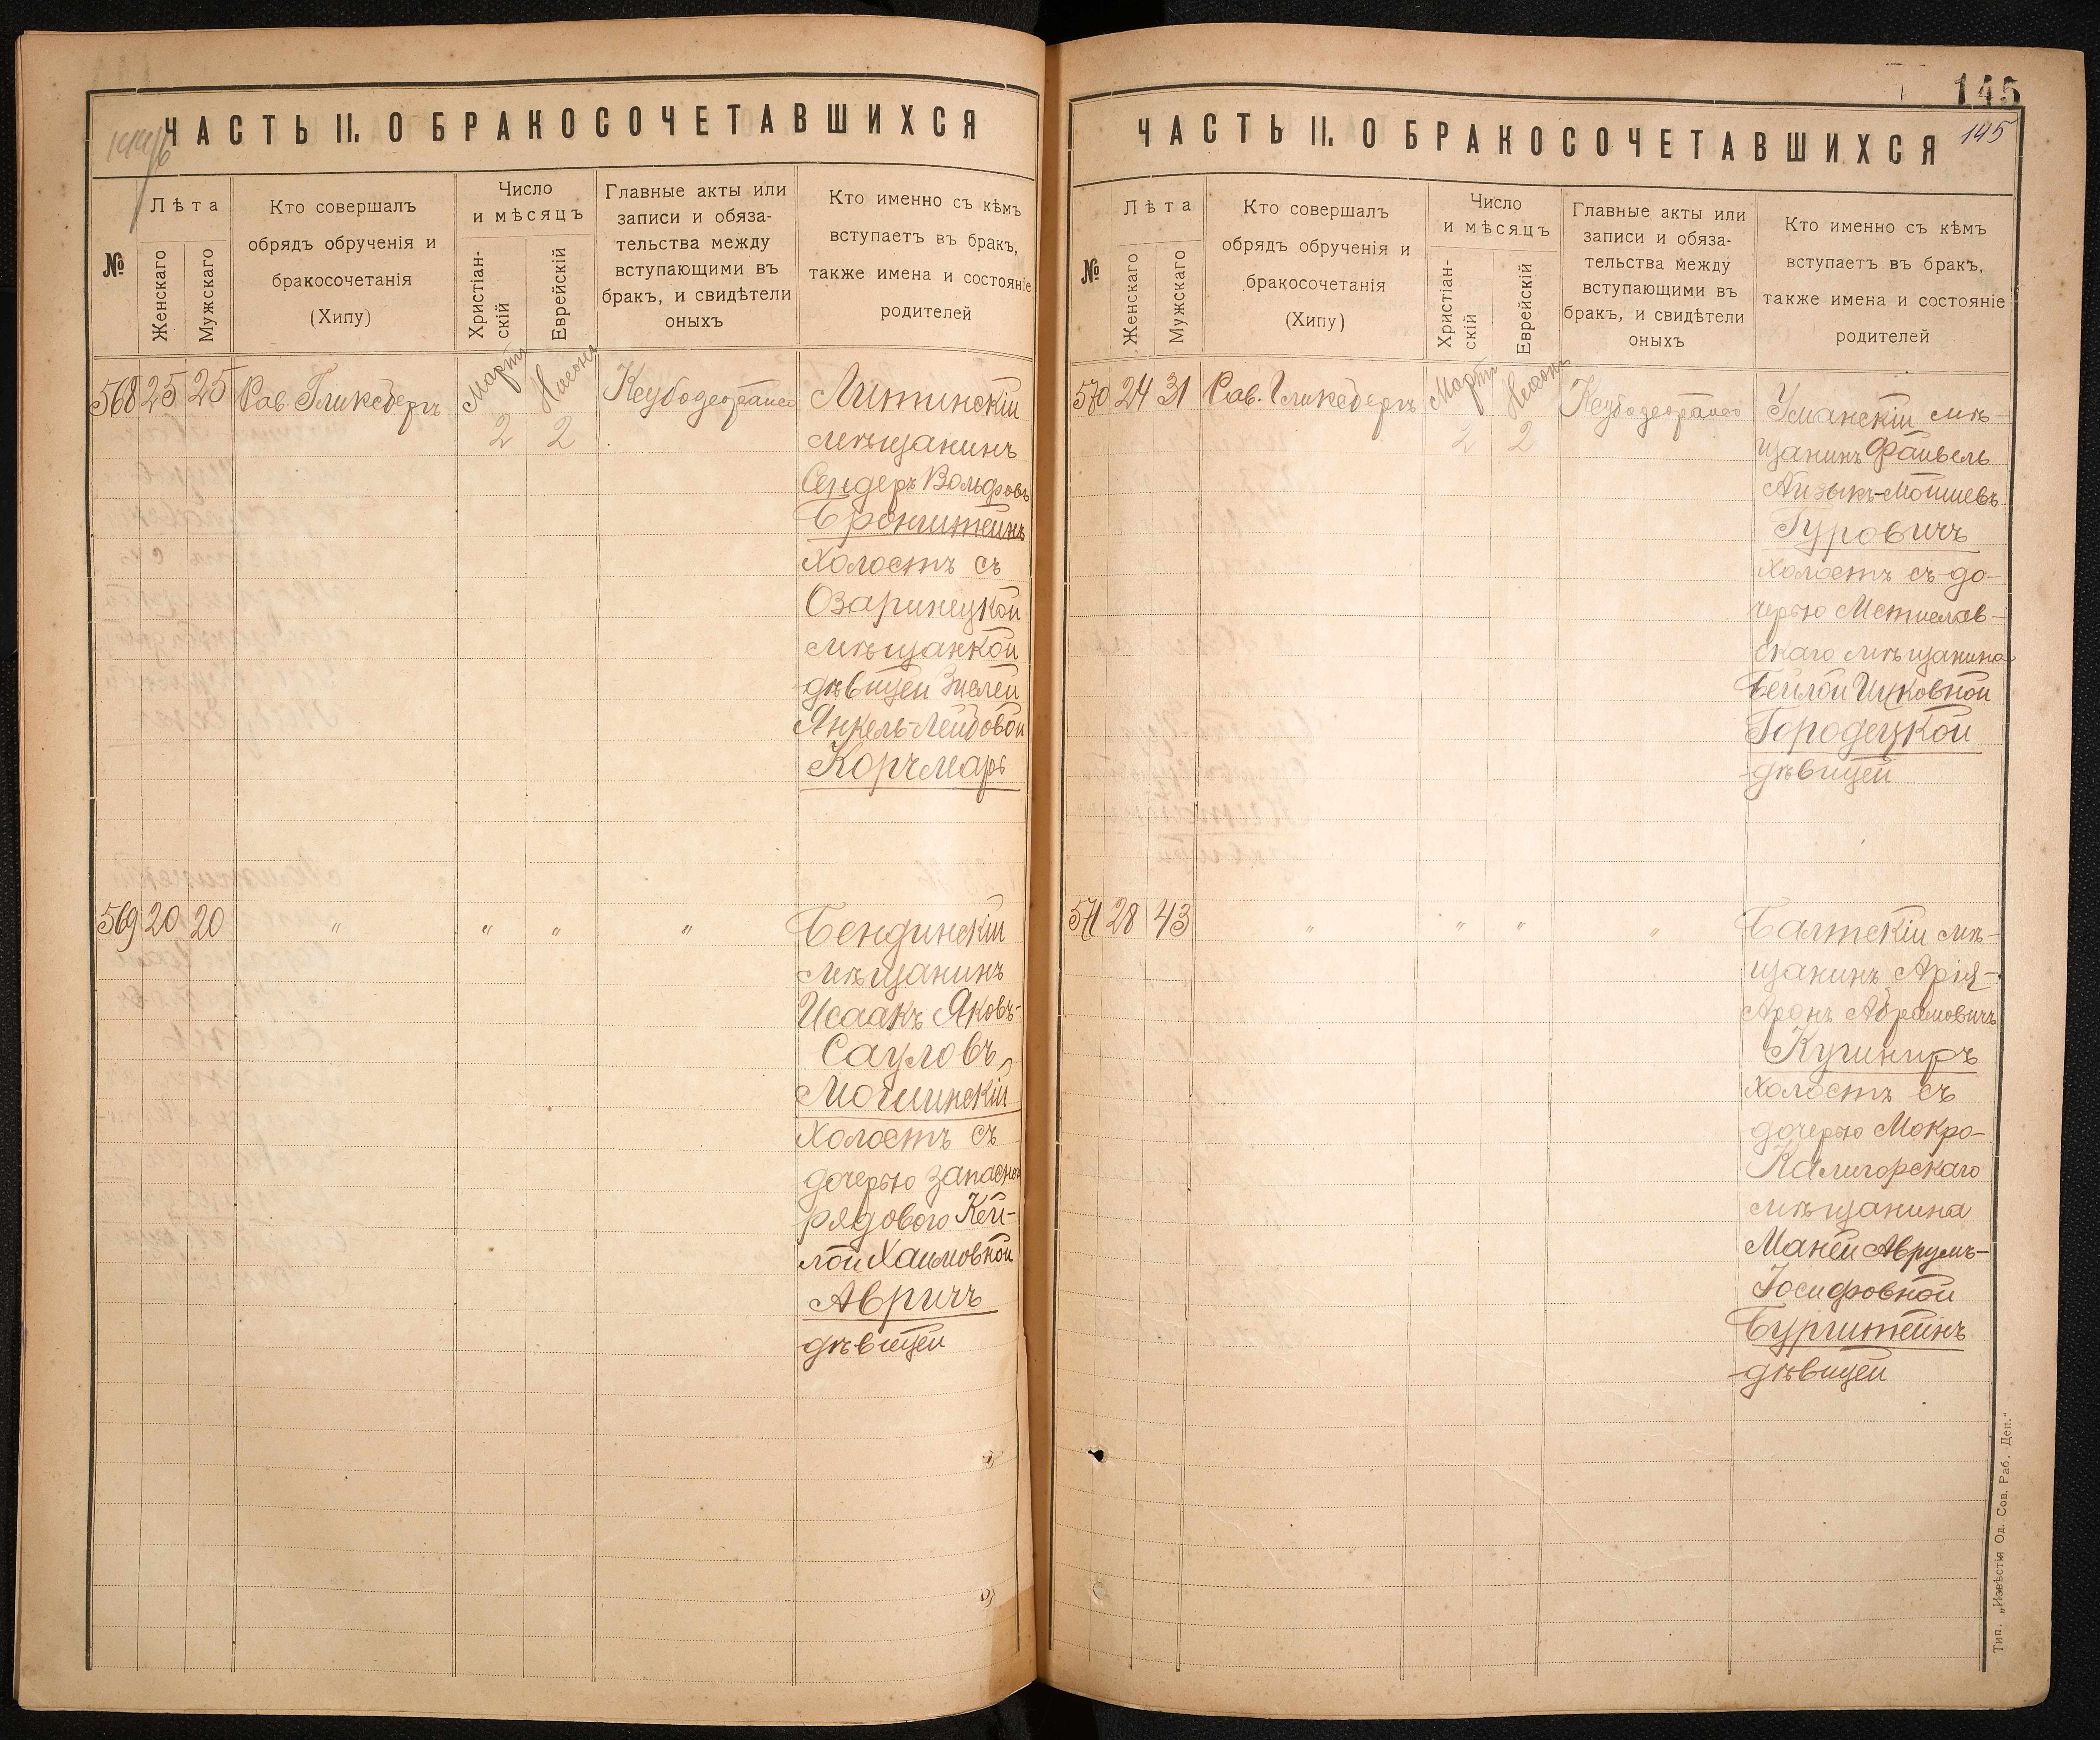 ЧАСТЬ II. О БРАКОСОЧЕТАВШИХСЯ
№
Лѣта
Женскаго
Мужскаго
Кто совершалъ
обрядъ обрученія и
бракосочетанія
(Хипу)
Число
и мѣсяцъ
Христіан-
скій
Еврейскій
Главные акты или
записи и обяза-
тельства между
вступающими въ
бракъ, и свидѣтели
оныхъ
Кто именно съ кѣмъ
вступаетъ въ бракъ,
также имена и состояніе
родителей
568 25 25 Рав. Гликсбергъ
Мартъ 2
Нисонъ 2
Литинскій
мѣщанинъ
Сендеръ Вольфовъ
Бронштейнъ
холостъ съ
Озаринецкой
мѣщанкой
дѣвицей Зислей
Янкель-Лейбовой
Корчмарь
569 20 20 " " " "
Бендинскій
мѣщанинъ
Исаакъ Яковъ-
Сауловъ
Мошинскій
холостъ съ
дочерью запасного
рядового Кей-
лой Хаимовной
Авричъ
дѣвицей
145
145
ЧАСТЬ II. О БРАКОСОЧЕТАВШИХСЯ
№
Лѣта
Женскаго
Мужскаго
Кто совершалъ
обрядъ обрученія и
бракосочетанія
(Хипу)
Число
и мѣсяцъ
Христіан-
скій
Еврейскій
Главные акты или
записи и обяза-
тельства между
вступающими въ
бракъ, и свидѣтели
оныхъ
Кто именно съ кѣмъ
вступаетъ въ бракъ,
также имена и состояніе
родителей
570 24 31 Рав. Гликсбергъ
Мартъ 2
Нисонъ 2
Уманскій мѣ-
щанинъ Файвель
Айзыкъ-Мошиевъ
Гуровичъ
холостъ съ до-
черью Мстислав-
скаго мѣщанина
Бейлой Ицковной
Городецкой
дѣвицей
571 28 43 " " " "
Балтскій мѣ-
щанинъ Арія-
Аронъ Абрамовичъ
Кушниръ
холостъ съ
дочерью Мокро-
Калигорскаго
мѣщанина
Маней Аврумъ-
Іосифовной
Бурштейнъ
дѣвицей
Тип. „Извѣстія Од. Сов. Раб. Деп."